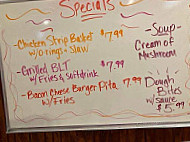 Specials
- Chicken Strip Basket $7.99
w/O rings + Slaw
- Grilled BLT $7.99
w/Fries & Softdrink
- Bacon Cheese Burger Pita 7.99
w/Fries
- Soup -
Cream of
Mushroom
Dough
Bites
w/sauce
$5.99